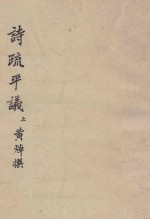 詩疏平議 上 黃焯撰